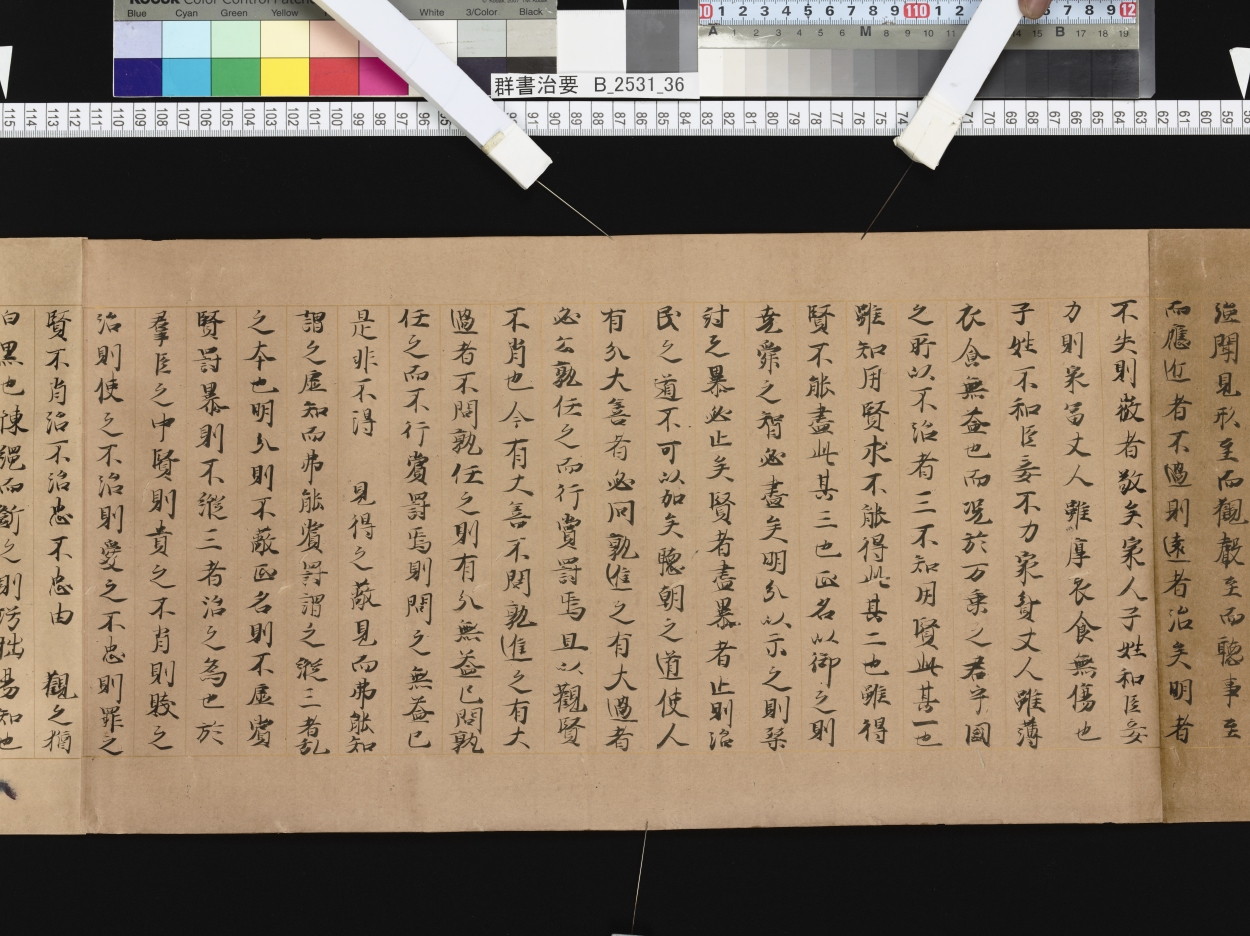 群書治要 B_2531_36
強聞見形至而觀聲至而聽事至
而應近者不過則遠者治矣明者
不失則微者敬矣家人子姓和臣妾
力則家富丈人雖厚衣食無傷也
子姓不和臣妾不力家貧丈人雖薄
衣食無益也而況於万乗之君乎國
之所以不治者三不知用賢此其一也
雖知用賢求不能得此其二也雖得
賢不能盡此其三也正名以御之則
堯舜之智必盡矣明分以示之則桀
紂之暴必止矣賢者盡暴者止則治
民之道不可以加矣聽朝之道使人
有分大善者必問孰進之有大過者
必云孰任之而行賞罰焉且以觀賢
不肖也今有大善不問孰進之有大
過者不問孰任之則有分無益已問孰
任之而不行賞罰焉則問之無益已
是非不得 見得之蔽見而弗能知
謂之虛知而弗能賞罰謂之縱三者乱
之本也明分則不蔽正名則不虛賞
賢罰暴則不縱三者治之為也於
羣臣之中賢則貴之不肖則賤之
治則使之不治則愛之不忠則罪之
賢不肖治不治忠不忠由 觀之猶
白黒也陳繩而斲之則巧拙易知也